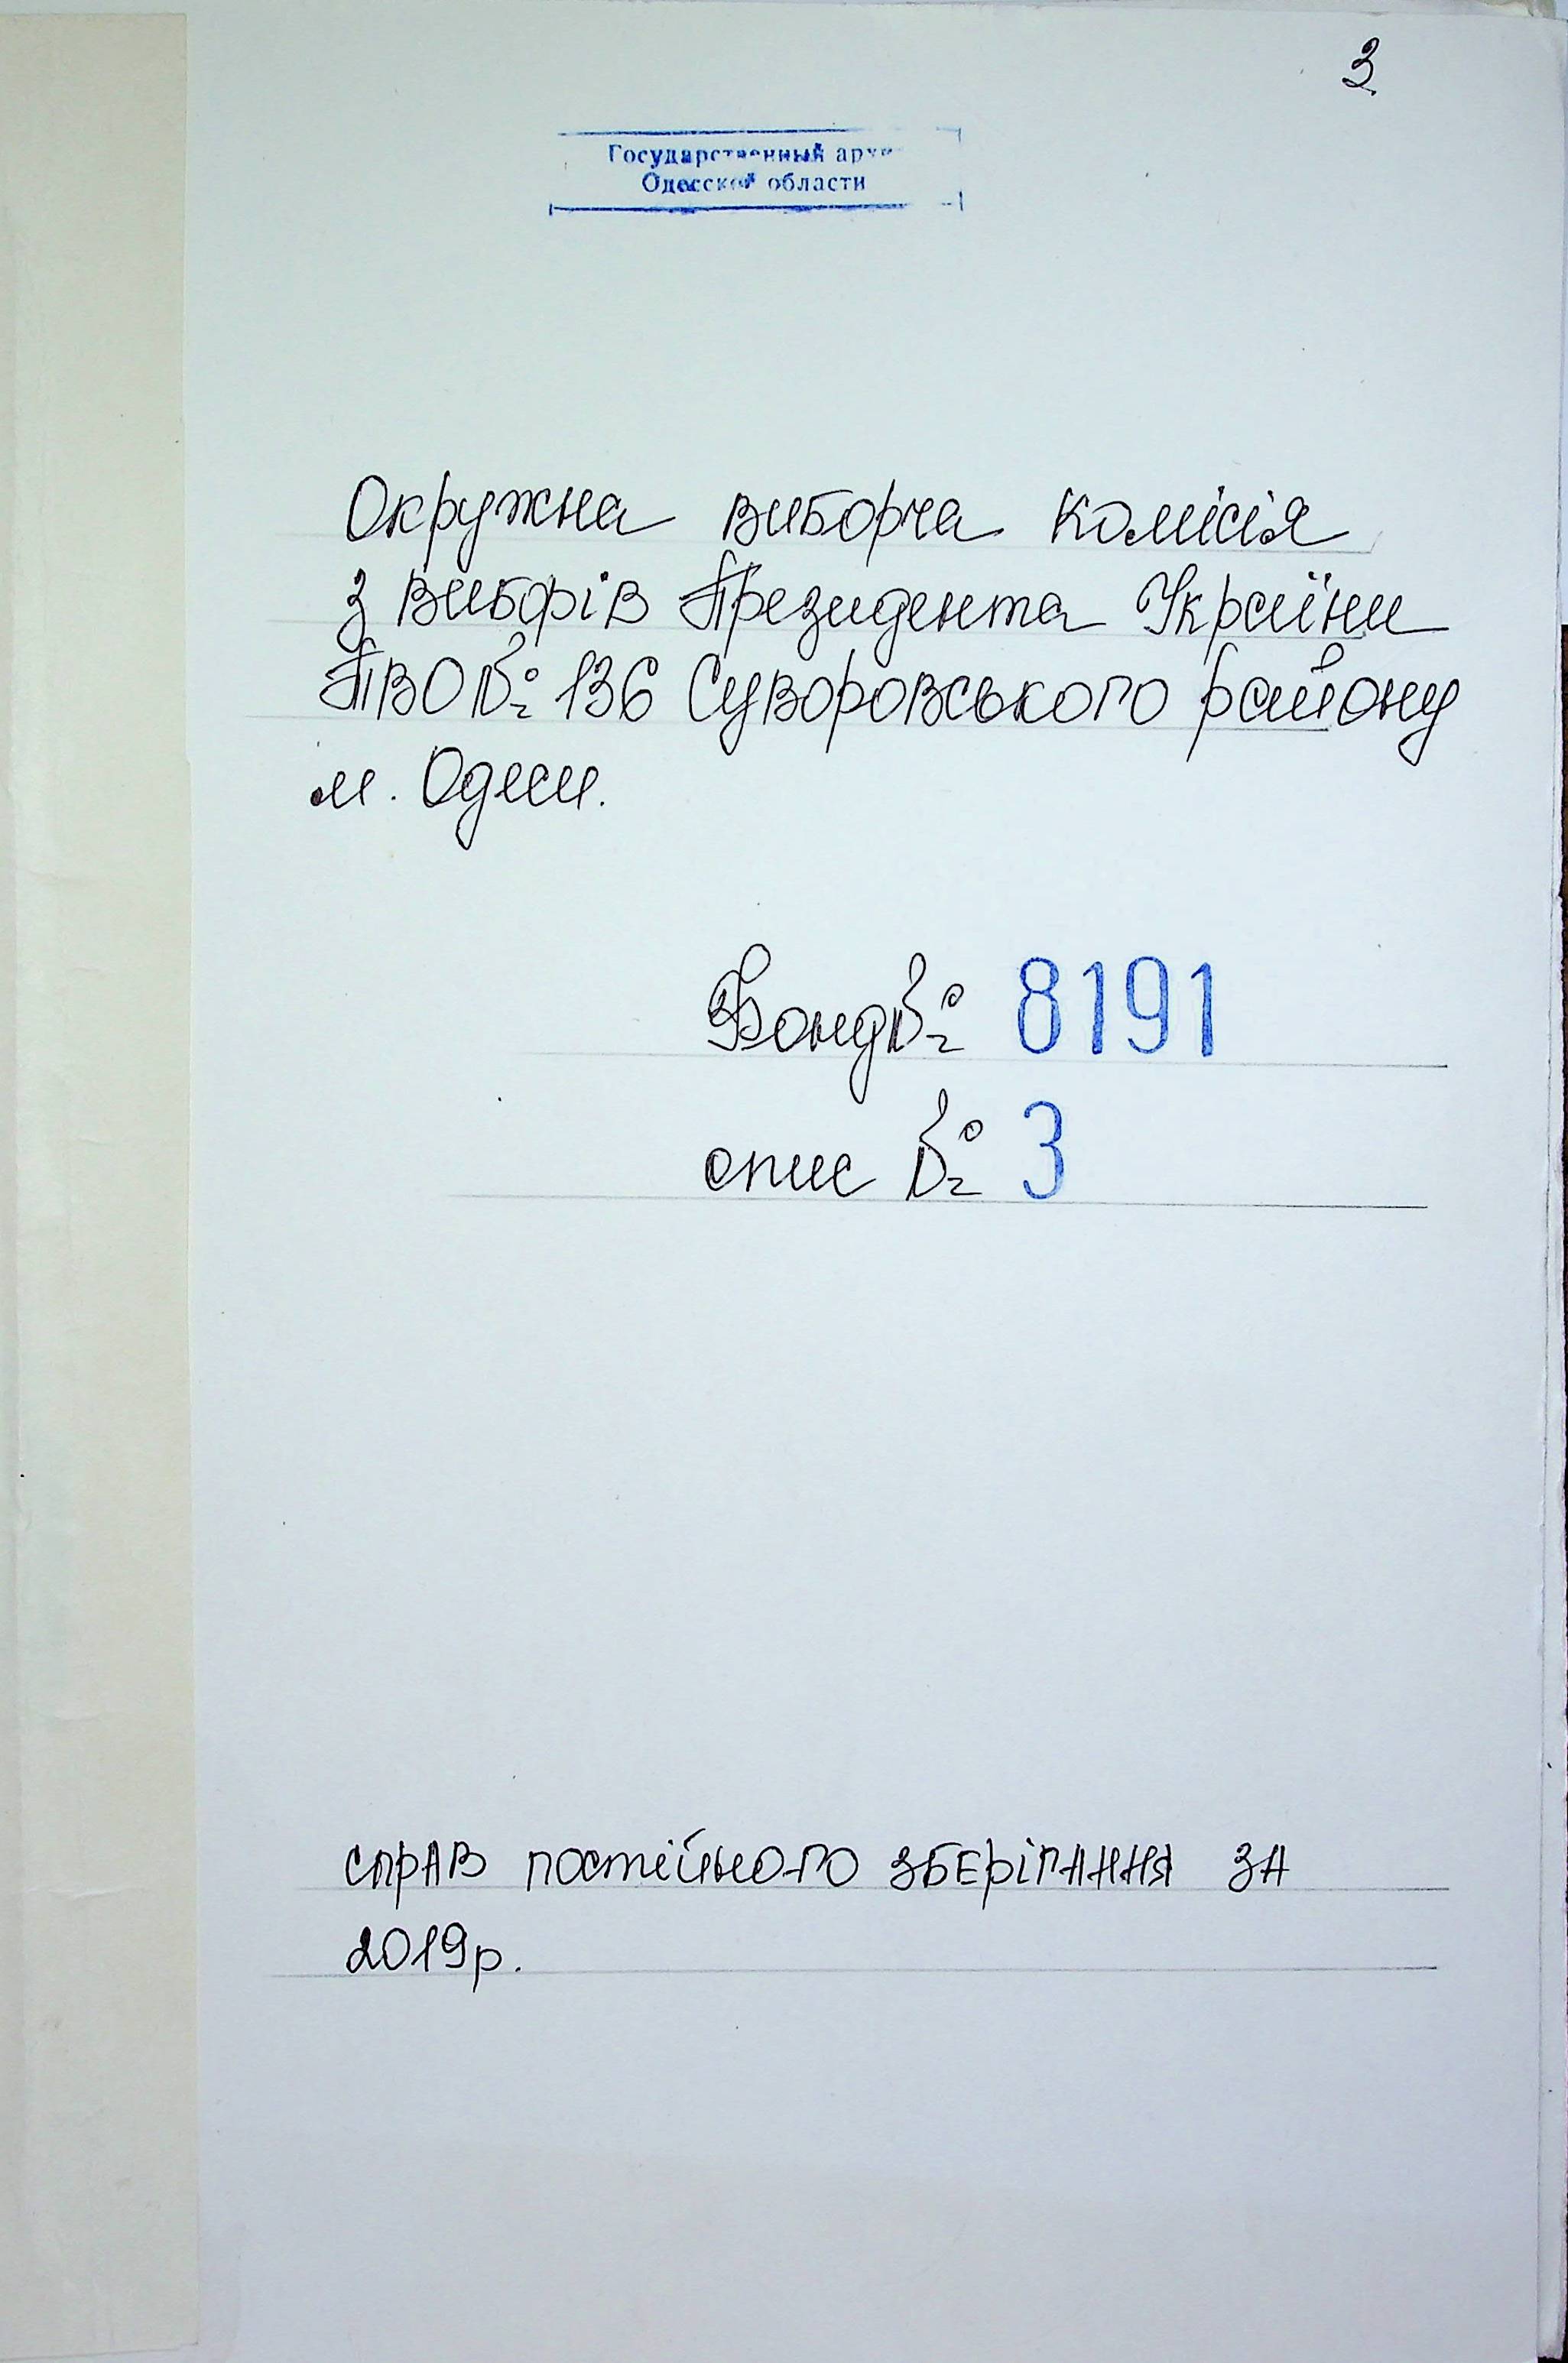 3
Государственный архив
Одесской области
Окружна виборча комісія
з виборів Президента України
ТВО № 136 Суворовського району
м. Одеси.
Фонд № 8191
опис № 3
справ постійного зберігання за
2019р.